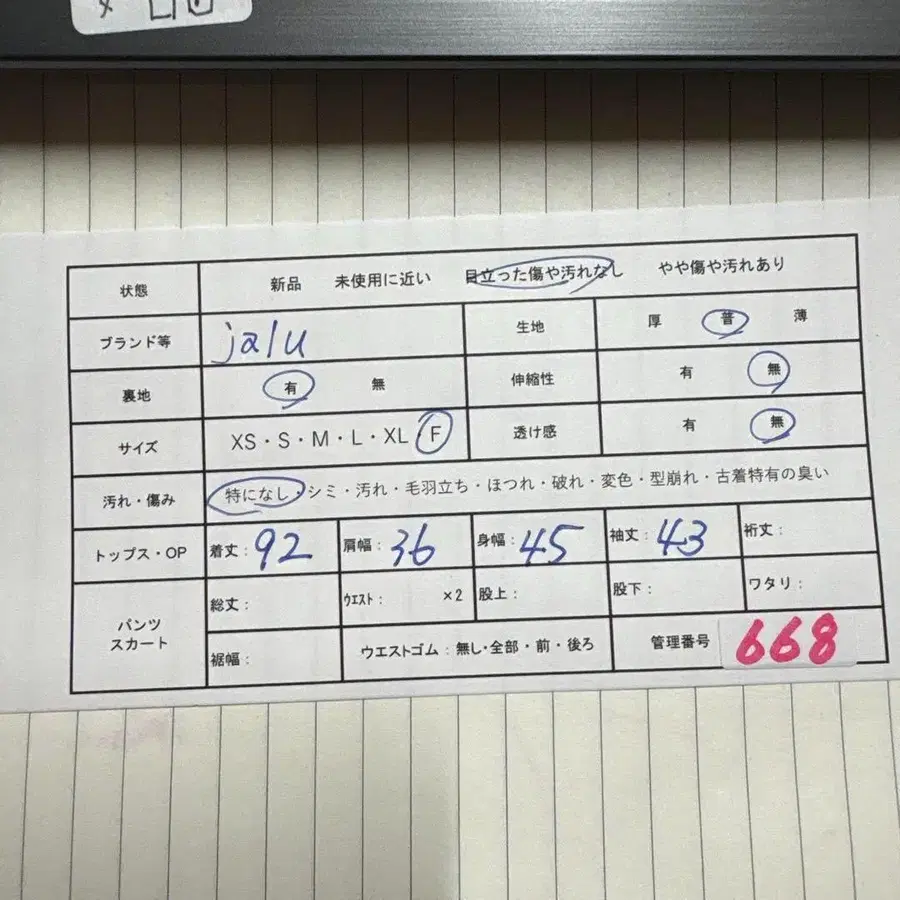 状態 新品 未使用に近い 目立った傷や汚れなし やや傷や汚れあり
ブランド等 jalu 生地 厚 普 薄
裏地 有 無 伸縮性 有 無
サイズ XS・S・M・L・XL F 透け感 有 無
汚れ・傷み 特になし・シミ・汚れ・毛羽立ち・ほつれ・破れ・変色・型崩れ・古着特有の臭い
トップス・OP 着丈：92 肩幅：36 身幅：45 袖丈：43 裄丈：
パンツ スカート 総丈： ウエスト： ×2 股上： 股下： ワタリ：
裾幅： ウエストゴム：無し・全部・前・後ろ 管理番号 668